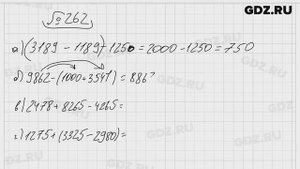 GDZ.RU
№262
а) (3189 - 1189) - 1250 = 2000 - 1250 = 750
б) 9862 - (1000 + 354
в) 2478 + 8265 - 4265 =
г) 1275 + (3325 - 2980) =
GDZ.RU